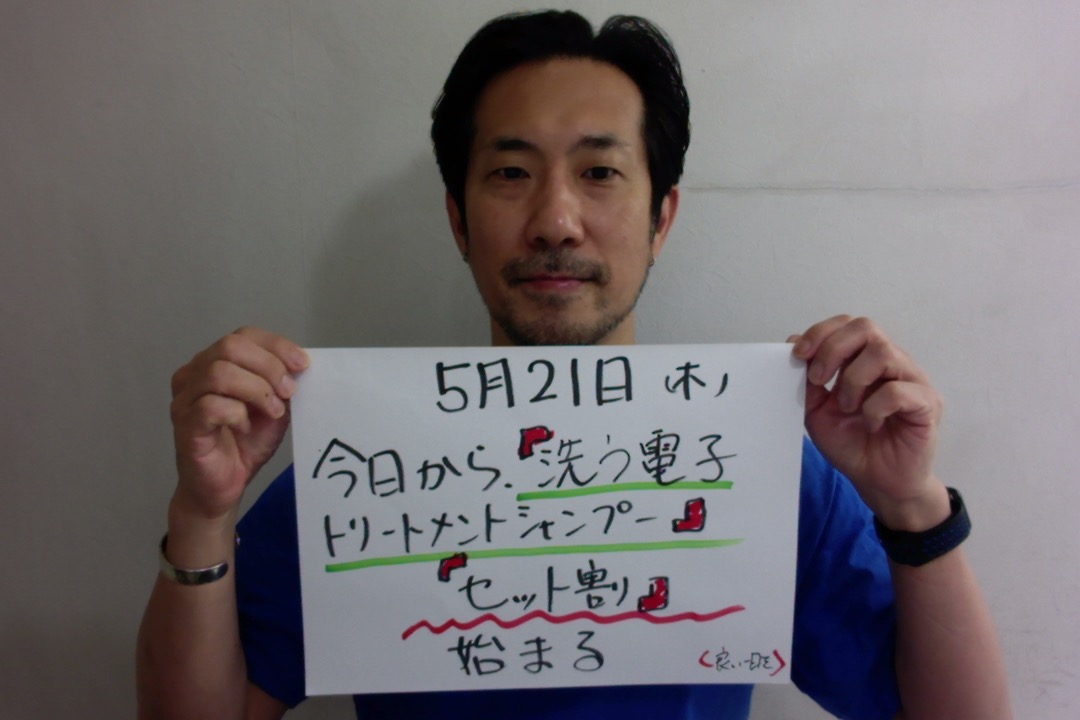 5月21日 木
今日から、『洗う電子
トリートメントシャンプー』
『セット割』
始まる
《良い一日を》